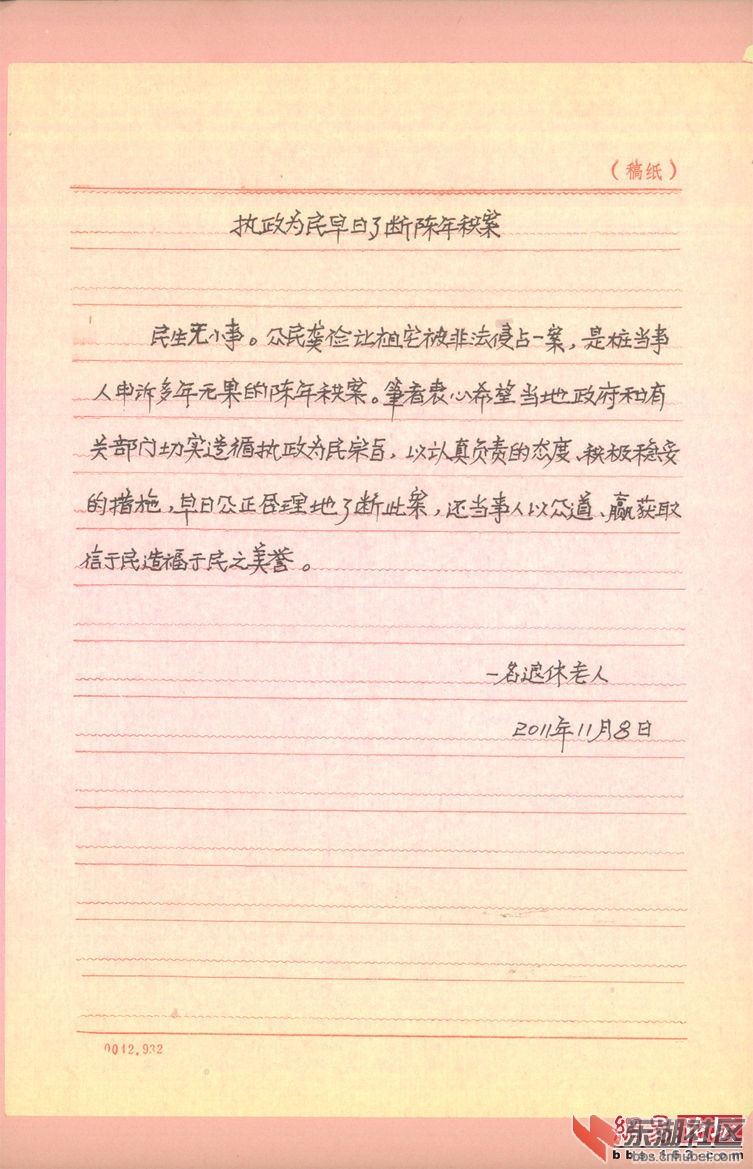 （稿纸）
执政为民早日了断陈年积案
民生无小事。公民龚俭让祖宅被非法侵占一案，是桩当事
人申诉多年无果的陈年积案。笔者衷心希望当地政府和有
关部门切实遵循执政为民宗旨，以认真负责的态度、积极稳妥
的措施，早日公正合理地了断此案，还当事人以公道、赢获取
信于民造福于民之美誉。
一名退休老人
2011年11月8日
0042.932
东湖社区
bbs.cnhubei.com